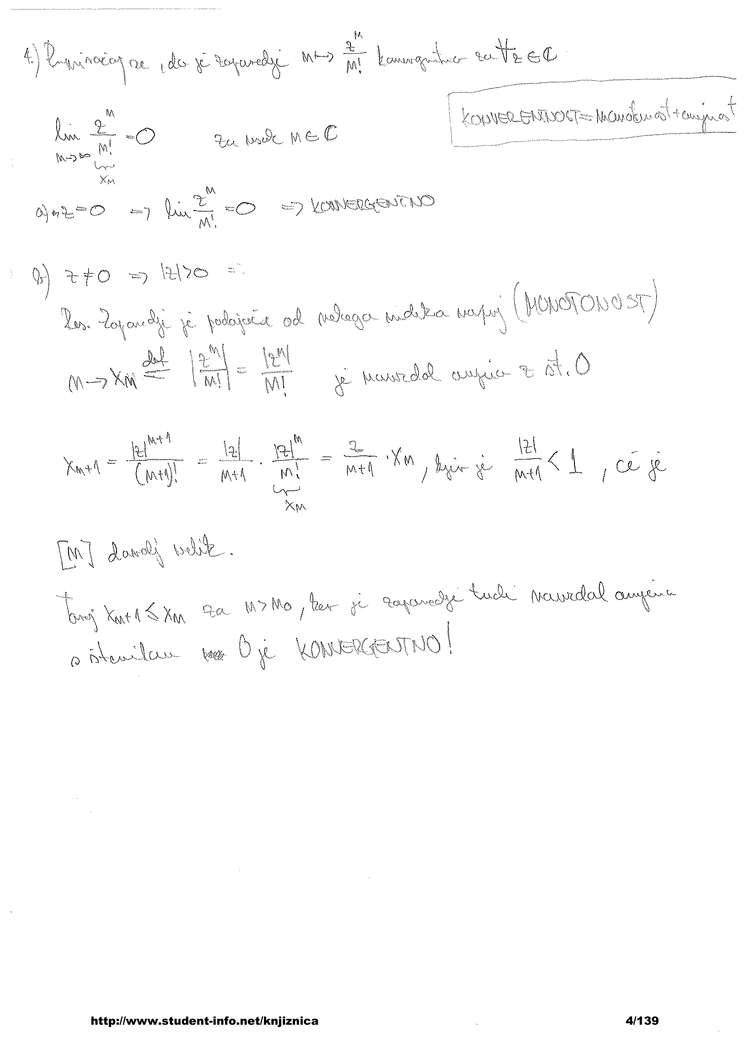 4.) Prepričaj se, da je zaporedje n ↦ z^n/n! konvergentno za ∀z∈ℂ
KONVERENTNOST = monotonost + omejenost
lim_{n→∞} z^n/n! = 0 za vsak n∈ℂ
x_n
a) z=0 => lim z^n/n! = 0 => KONVERGENTNO
b) z≠0 => |z|>0 =
Res. Zaporedje je padajoče od nekega indeksa naprej (MONOTONOST)
n → x_n def= |z^n/n!| = |z^n|/n! je navzdol omejeno z št. 0
x_{n+1} = |z|^{n+1}/(n+1)! = |z|/(n+1) · |z|^n/n! = z/(n+1) · x_n, kjer je |z|/(n+1) < 1, če je
x_n
[n] dovolj velik.
Torej x_{n+1} ≤ x_n za n>n_0, ker je zaporedje tudi navzdol omejeno
s številom 0 je KONVERGENTNO!
http://www.student-info.net/knjiznica 4/139